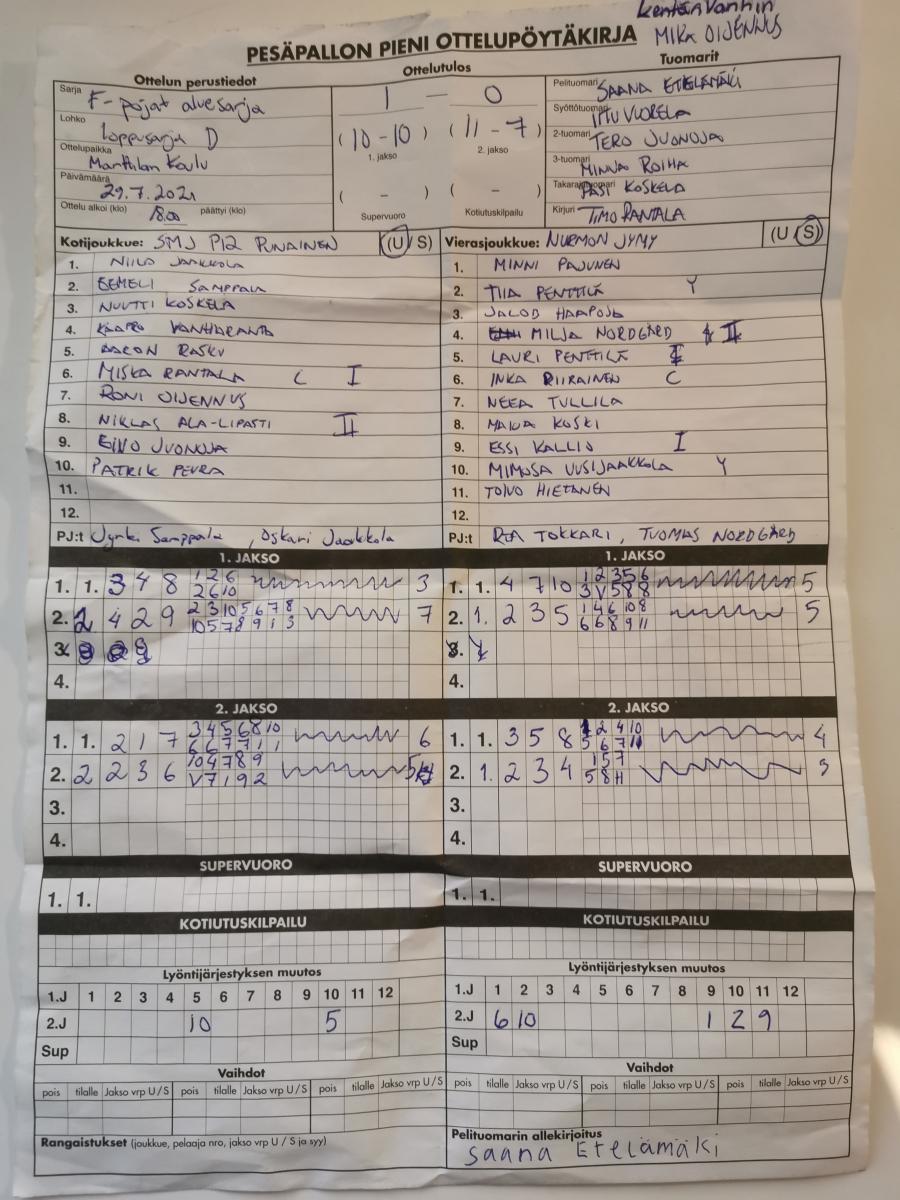 kentän vanhin
MIKA OIJENNUS
PESÄPALLON PIENI OTTELUPÖYTÄKIRJA
Ottelun perustiedot
Sarja F-pojat aluesarja
Lohko loppusarja D
Ottelupaikka Marttilan Koulu
Päivämäärä 29.7.2021
Ottelu alkoi (klo) 18.00 päättyi (klo)
Ottelutulos
1 — 0
(10-10) (11-7)
1. jakso 2. jakso
( - ) ( - )
Supervuoro Kotiutuskilpailu
Tuomarit
Pelituomari SAANA ETELÄMÄKI
Syöttötuomari VUORELA
2-tuomari TERO JUONOJA
3-tuomari MINNA ROIHA
Takarajatuomari PASI KOSKELA
Kirjuri TIMO RANTALA
Kotijoukkue: SMJ P12 PUNAINEN (U/S)
1. NIILO JAAKKOLA
2. EEMELI SAMPPALA
3. NUUTTI KOSKELA
4. KAAPRO VANHARANTA
5. AARON RASKU
6. MISKA RANTALA C I
7. RONI OIJENNUS
8. NIKLAS ALA-LIPASTI II
9. EINO JUONOJA
10. PATRIK PEURA
11.
12.
PJ:t Samppala, Oskari Jaakkola
Vierasjoukkue: NURMON JYMY (U/S)
1. MINNI PAJUNEN
2. TIIA PENTTILÄ Y
3. JACOB HAAPOJA
4. MILJA NORDGÅRD II
5. LAURI PENTTILÄ
6. INKA RIIRAINEN C
7. NEEA TULLILA
8. KOSKI
9. ESSI KALLIO I
10. MIMOSA UUSIJAAKKOLA Y
11. TOIVO HIETANEN
12.
PJ:t TOKKARI, TUOMAS NORDGÅRD
1. JAKSO
1. 1. 3 4 8 1 2 6 3
2 6 10
2. 2 4 2 9 2 3 10 5 6 7 8 7
10 5 7 8 9 1 3
3.
4.
1. JAKSO
1. 1. 4 7 10 1 2 3 5 6 5
3 V 5 8 8
2. 1. 2 3 5 1 4 6 10 8 5
6 6 8 9 11
3.
4.
2. JAKSO
1. 1. 2 1 7 3 4 5 6 8 10 6
6 6 7 7 1 1
2. 2 2 3 6 10 4 7 8 9 5
V 7 1 9 2
3.
4.
2. JAKSO
1. 1. 3 5 8 2 4 10 4
5 6 7 11
2. 1. 2 3 4 1 5 7 3
5 8 11
3.
4.
SUPERVUORO
1. 1.
KOTIUTUSKILPAILU
SUPERVUORO
1. 1.
KOTIUTUSKILPAILU
Lyöntijärjestyksen muutos
1.J 1 2 3 4 5 6 7 8 9 10 11 12
2.J 10 5
Sup
Lyöntijärjestyksen muutos
1.J 1 2 3 4 5 6 7 8 9 10 11 12
2.J 6 10 1 2 9
Sup
Vaihdot
pois tilalle Jakso vrp U/S pois tilalle Jakso vrp U/S pois tilalle Jakso vrp U/S
Vaihdot
pois tilalle Jakso vrp U/S pois tilalle Jakso vrp U/S pois tilalle Jakso vrp U/S
Rangaistukset (joukkue, pelaaja nro, jakso vrp U / S ja syy)
Pelituomarin allekirjoitus
Saana Etelämäki